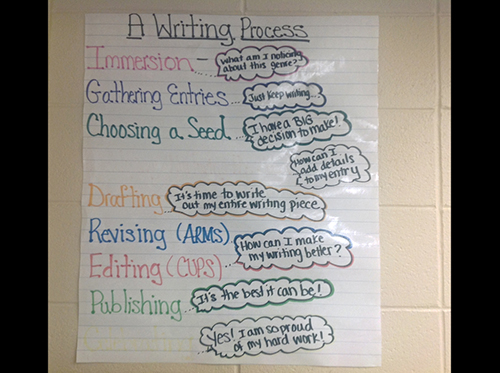 A Writing Process
Immersion -
what am I noticing
about this genre?
Gathering Entries...
Just keep writing...
Choosing a Seed
I have a BIG
decision to make!
How can I
add details
to my entry
Drafting
It's time to write
out my entire writing piece
Revising (ARMS)
Editing (CUPS)
How can I make
my writing better?
Publishing
It's the best it can be!
Yes! I am so proud
of my hard work!